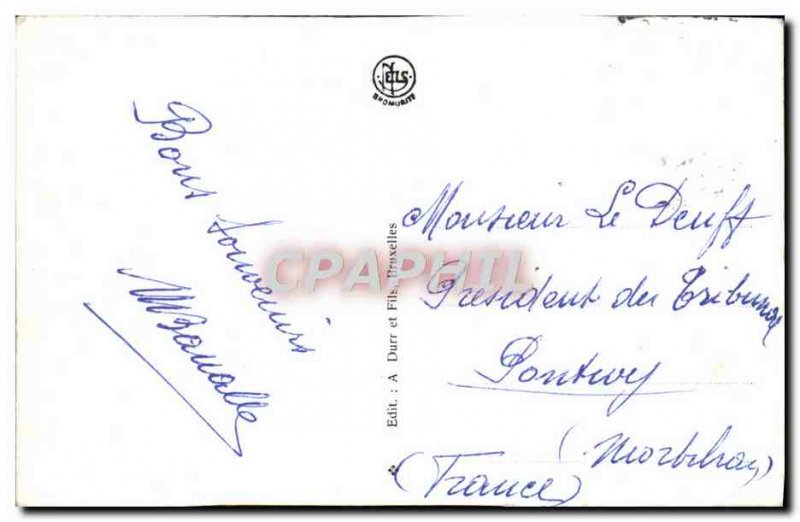 NELS
BROMURITE
Bons souvenirs
Edit. : A Durr et Fils, Bruxelles
CPAPHIL
Monsieur Le Deuff
Président du Tribunal
Pontivy
(Morbihan)
(France)